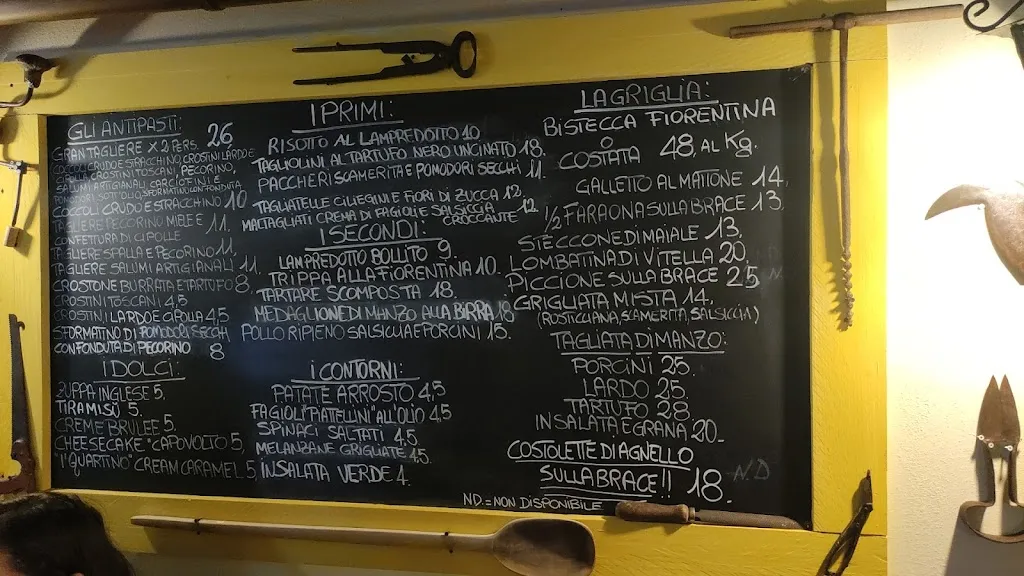 GLI ANTIPASTI:
GRAN TAGLIERE X 2 PERS. 26
CROSTINI LARDO E
CROSTINI TOSCANI, PECORINO,
COCCOLI CRUDO E STRACCHINO 10
PERE PECORINO MIELE E 11,
CONFETTURA DI CIPOLLE
TAGLIERE SPALLA E PECORINO 11,
TAGLIERE SALUMI ARTIGIANALI 11,
CROSTONE BURRATA E TARTUFO 8
CROSTINI TOSCANI 4,5
CROSTINI LARDO E CIPOLLA 4,5
SFORMATINO DI POMODORI SECCHI
CON FONDUTA DI PECORINO 8
I DOLCI:
ZUPPA INGLESE 5,
TIRAMISÙ 5,
CREME BRULEE 5,
CHEESECAKE "CAPOVOLTO" 5,
"I' QUARTINO" CREAM CARAMEL 5
I PRIMI:
RISOTTO AL LAMPREDOTTO 10
TAGLIOLINI AL TARTUFO NERO UNCINATO 18,
PACCHERI SCAMERITA E POMODORI SECCHI 11,
TAGLIATELLE CILIEGINI E FIORI DI ZUCCA 12,
MALTAGLIATI CREMA DI FAGIOLI E SALSICCIA
CROCCANTE 12,
I SECONDI:
LAMPREDOTTO BOLLITO 9,
TRIPPA ALLA FIORENTINA 10,
TARTARE SCOMPOSTA 18,
MEDAGLIONE DI MANZO ALLA BIRRA 18
POLLO RIPIENO SALSICCIA E PORCINI 15,
I CONTORNI:
PATATE ARROSTO 4,5
FAGIOLI "PIATTELLINI" ALL'OLIO 4,5
SPINACI SALTATI 4,5
MELANZANE GRIGLIATE 4,5
INSALATA VERDE 4,
LA GRIGLIA:
BISTECCA FIORENTINA
O
COSTATA 48, AL Kg.
GALLETTO AL MATTONE 14,
1/2 FARAONA SULLA BRACE 13,
STECCONE DI MAIALE 13,
LOMBATINA DI VITELLA 20,
PICCIONE SULLA BRACE 25
GRIGLIATA MISTA 14,
(ROSTICCIANA, SCAMERITA, SALSICCIA)
TAGLIATA DI MANZO:
PORCINI 25,
LARDO 25
TARTUFO 28
INSALATA E GRANA 20,
COSTOLETTE DI AGNELLO
SULLA BRACE!! 18, N.D
N.D.=NON DISPONIBILE